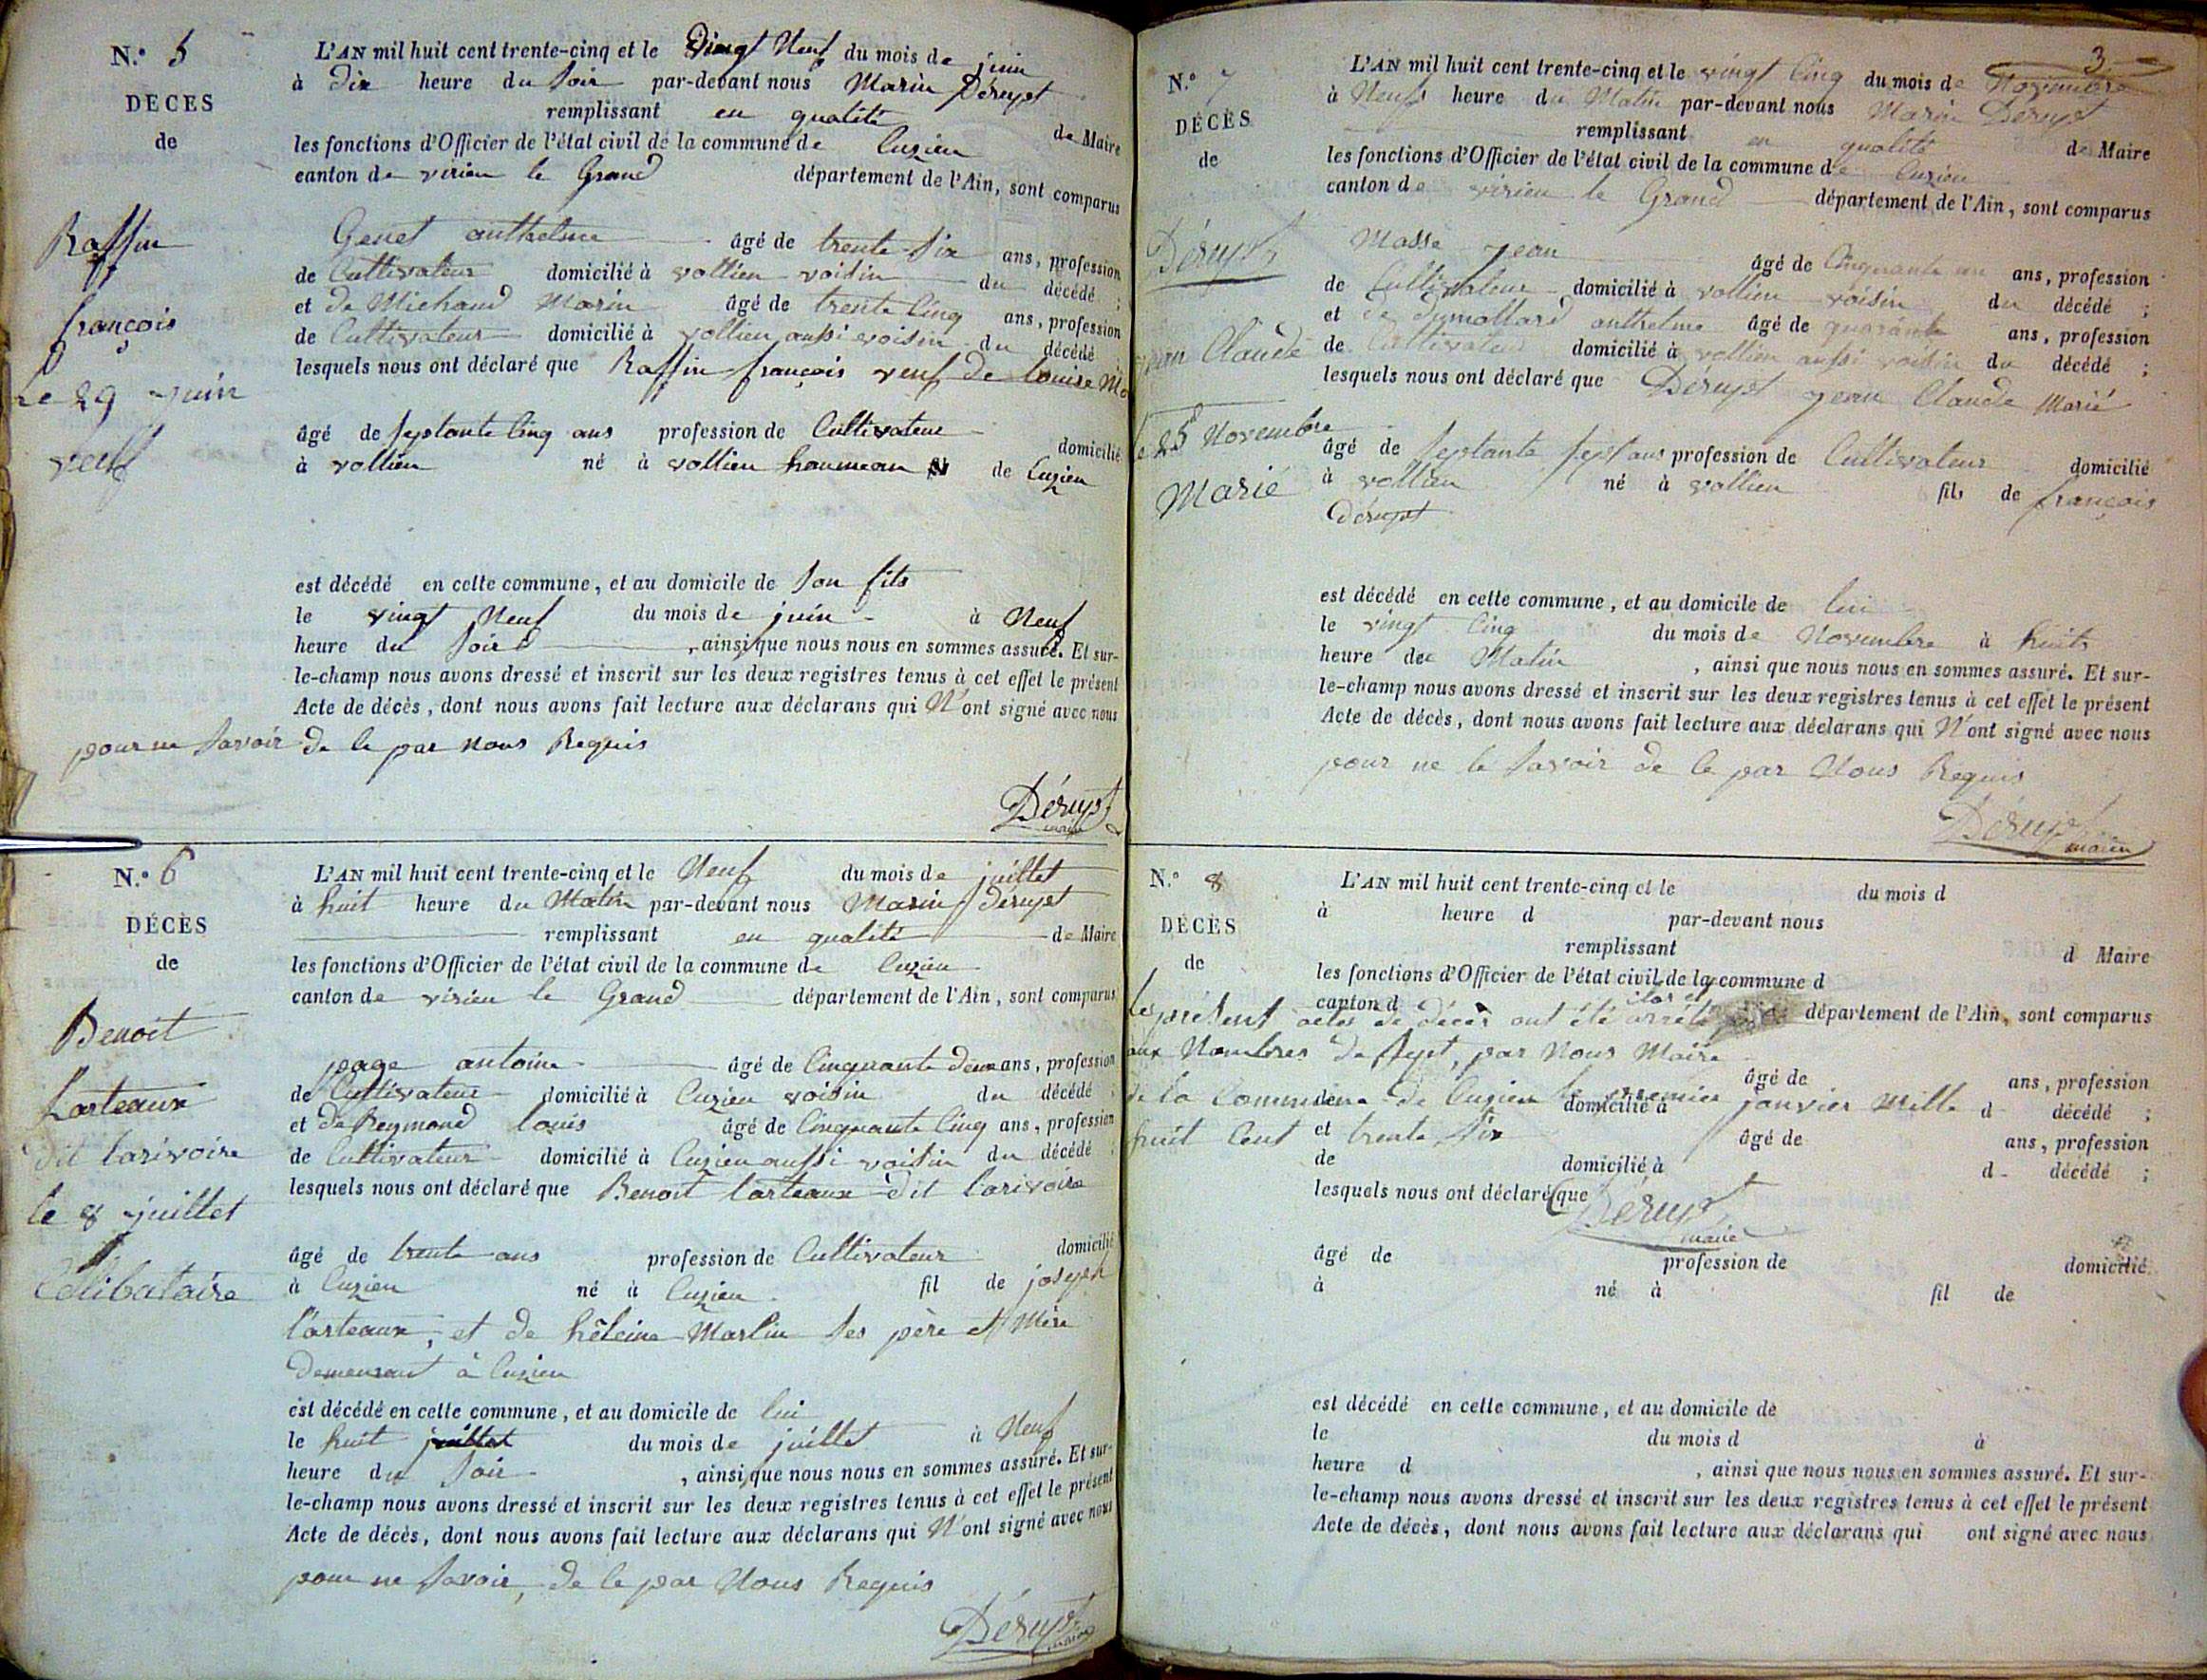 N.º 5
DÉCÈS
de
Raffin
françois
le 29 juin
veuf
L'AN mil huit cent trente-cinq et le Vingt Neuf du mois de juin
à dix heure du Soir par-devant nous Marin Dérupt
remplissant en qualité de Maire
les fonctions d'Officier de l'état civil de la commune de Cuzieu
canton de virieu le Grand département de l'Ain, sont comparus
Genet anthelme âgé de trente Six ans, profession
de Cultivateur domicilié à vollien voisin du décédé ;
et de Michaud Marin âgé de trente Cinq ans, profession
de Cultivateur domicilié à vollien aussi voisin du décédé
lesquels nous ont déclaré que Raffin françois veuf de Louise
âgé de Septante Cinq ans profession de Cultivateur domicilié
à vollien né à vollien hammeau de Cuzieu
est décédé en cette commune, et au domicile de Son fils
le vingt Neuf du mois de juin à Neuf
heure du Soir , ainsi que nous nous en sommes assuré. Et sur-
le-champ nous avons dressé et inscrit sur les deux registres tenus à cet effet le présent
Acte de décès, dont nous avons fait lecture aux déclarans qui N'ont signé avec nous
pour ne Savoir de le par Nous Requis
Dérupt
maire
N.º 6
DÉCÈS
de
Benoit
Larteaux
dit larivoire
le 8 juillet
Célibataire
L'AN mil huit cent trente-cinq et le Neuf du mois de juillet
à huit heure du Matin par-devant nous Marin Dérupt
remplissant en qualité de Maire
les fonctions d'Officier de l'état civil de la commune de Cuzieu
canton de virieu le Grand département de l'Ain, sont comparus
page antoine âgé de Cinquante deux ans, profession
de Cultivateur domicilié à Cuzieu voisin du décédé ;
et de Reymond louis âgé de Cinquante Cinq ans, profession
de Cultivateur domicilié à Cuzieu aussi voisin du décédé ;
lesquels nous ont déclaré que Benoit larteaux dit larivoire
âgé de trente ans profession de Cultivateur domicilié
à Cuzieu né à Cuzieu fil de joseph
larteaux, et de hèleine Marlin Ses père et Mère
Demeurant à Cuzieu
est décédé en cette commune, et au domicile de lui
le huit juillet du mois de juillet à Neuf
heure du Soir , ainsi que nous nous en sommes assuré. Et sur-
le-champ nous avons dressé et inscrit sur les deux registres tenus à cet effet le présent
Acte de décès, dont nous avons fait lecture aux déclarans qui N'ont signé avec nous
pour ne Savoir, de le par Nous Requis
Dérupt
maire
3
N.º 7
DÉCÈS
de
Dérupt
jean Claude
le 25 Novembre
Marié
L'AN mil huit cent trente-cinq et le vingt Cinq du mois de Novembre
à Neuf heure du Matin par-devant nous Marin Dérupt
remplissant en qualité de Maire
les fonctions d'Officier de l'état civil de la commune de Cuzieu
canton de virieu le Grand département de l'Ain, sont comparus
Masse jean âgé de Cinquante un ans, profession
de Cultivateur domicilié à vollien voisin du décédé ;
et de Dumollard anthelme âgé de quarante ans, profession
de Cultivateur domicilié à vollien aussi voisin du décédé ;
lesquels nous ont déclaré que Dérupt jean Claude Marié
âgé de Septante Sept ans profession de Cultivateur domicilié
à vollien né à vollien fils de françois
Dérupt
est décédé en cette commune, et au domicile de lui
le vingt Cinq du mois de Novembre à huits
heure de Matin , ainsi que nous nous en sommes assuré. Et sur-
le-champ nous avons dressé et inscrit sur les deux registres tenus à cet effet le présent
Acte de décès, dont nous avons fait lecture aux déclarans qui N'ont signé avec nous
pour ne le Savoir de le par Nous Requis
Dérupt
maire
N.º 8
DÉCÈS
de
L'AN mil huit cent trente-cinq et le du mois d
à heure d par-devant nous
remplissant d Maire
les fonctions d'Officier de l'état civil de la commune d
canton d département de l'Ain, sont comparus
clos et
les présent actes de décès ont été arrêté
aux Nombres de Sept, par Nous Maire
âgé de ans, profession
de la Commune de Cuzieu le premier janvier mille
de domicilié à d décédé ;
huit Cent trente Six
et âgé de ans, profession
de domicilié à d décédé ;
lesquels nous ont déclaré que
Dérupt
maire
âgé de profession de domicilié
à né à fil de
est décédé en cette commune, et au domicile de
le du mois d à
heure d , ainsi que nous nous en sommes assuré. Et sur-
le-champ nous avons dressé et inscrit sur les deux registres tenus à cet effet le présent
Acte de décès, dont nous avons fait lecture aux déclarans qui ont signé avec nous